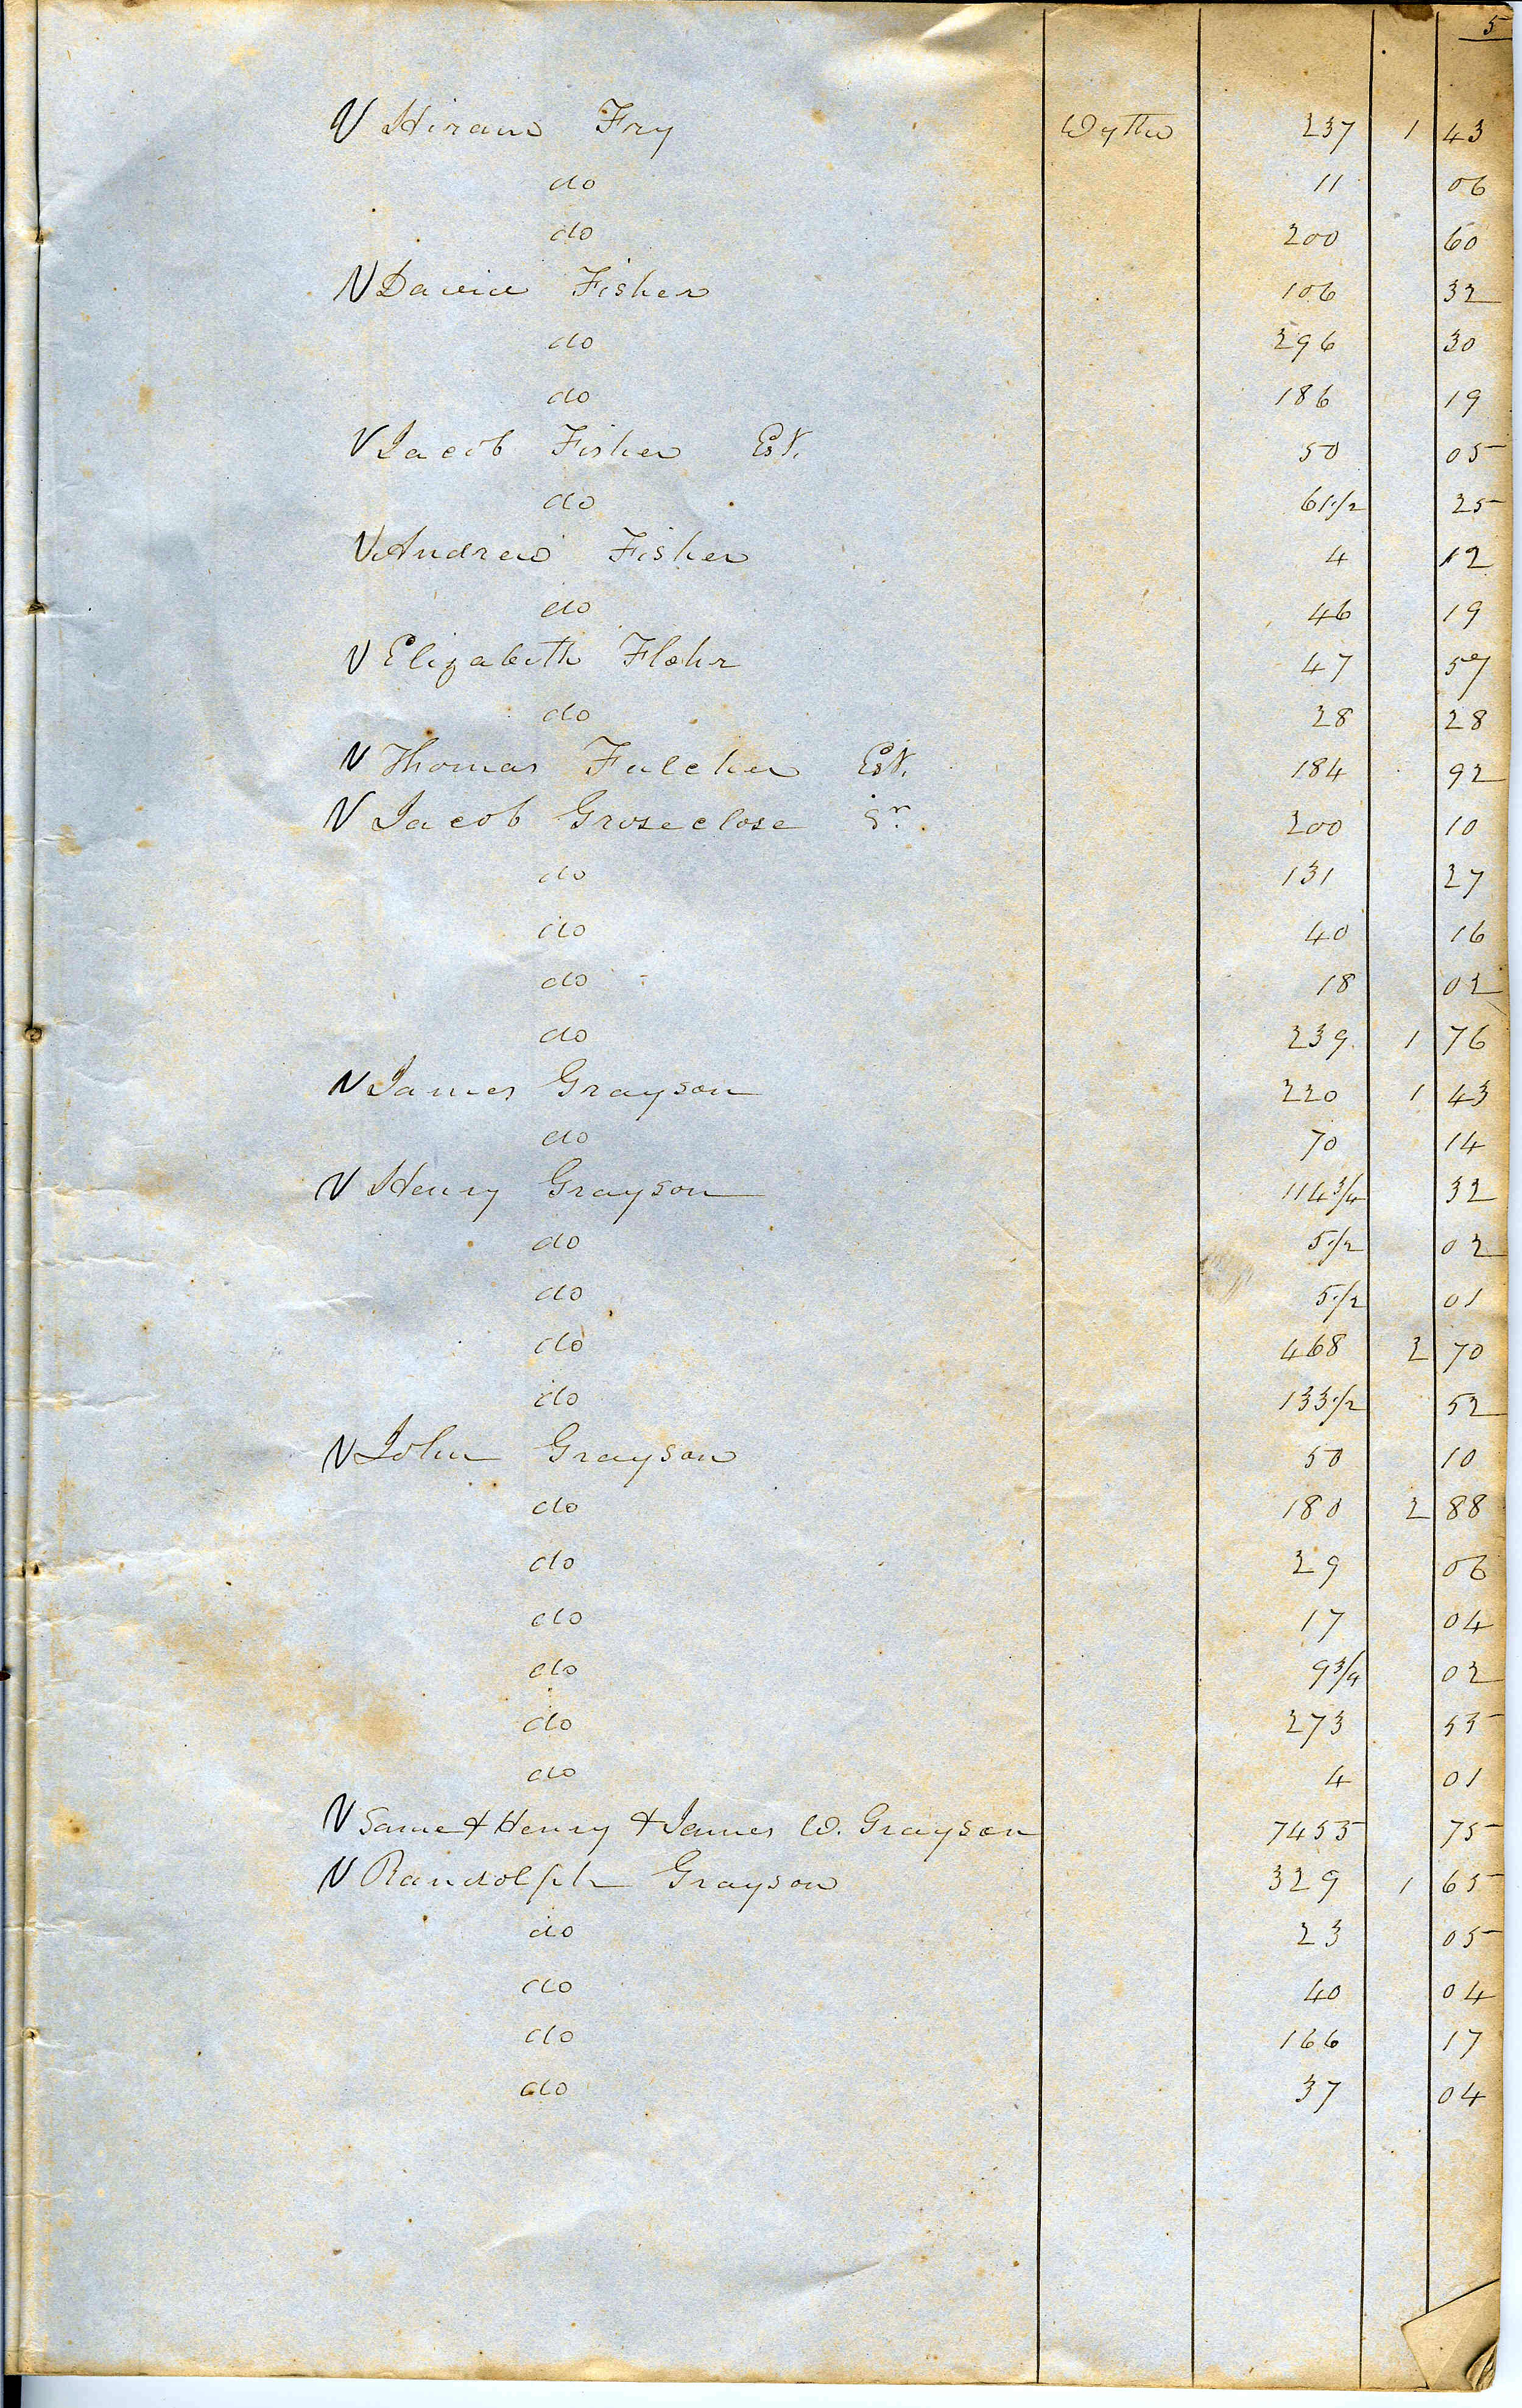 5
V Hiram Fry Wythe 237 1 43
do 11 06
do 200 60
V David Fisher 106 32
do 296 30
do 186 19
V Jacob Fisher Est. 50 05
do 61 1/2 25
V Andrew Fisher 4 12
do 46 19
V Elizabeth Flohr 47 57
do 28 28
V Thomas Fulcher Est. 184 92
V Jacob Groseclose Sr. 200 10
do 131 27
do 40 16
do 18 02
do 239 1 76
V James Grayson 220 1 43
do 70 14
V Henry Grayson 114 3/4 32
do 5 1/2 02
do 5 1/2 01
do 468 2 70
do 133 1/2 52
V John Grayson 50 10
do 180 2 88
do 29 06
do 17 04
do 9 3/4 02
do 273 55
do 4 01
V Same & Henry & James W. Grayson 7455 75
V Randolph Grayson 329 1 65
do 23 05
do 40 04
do 166 17
do 37 04